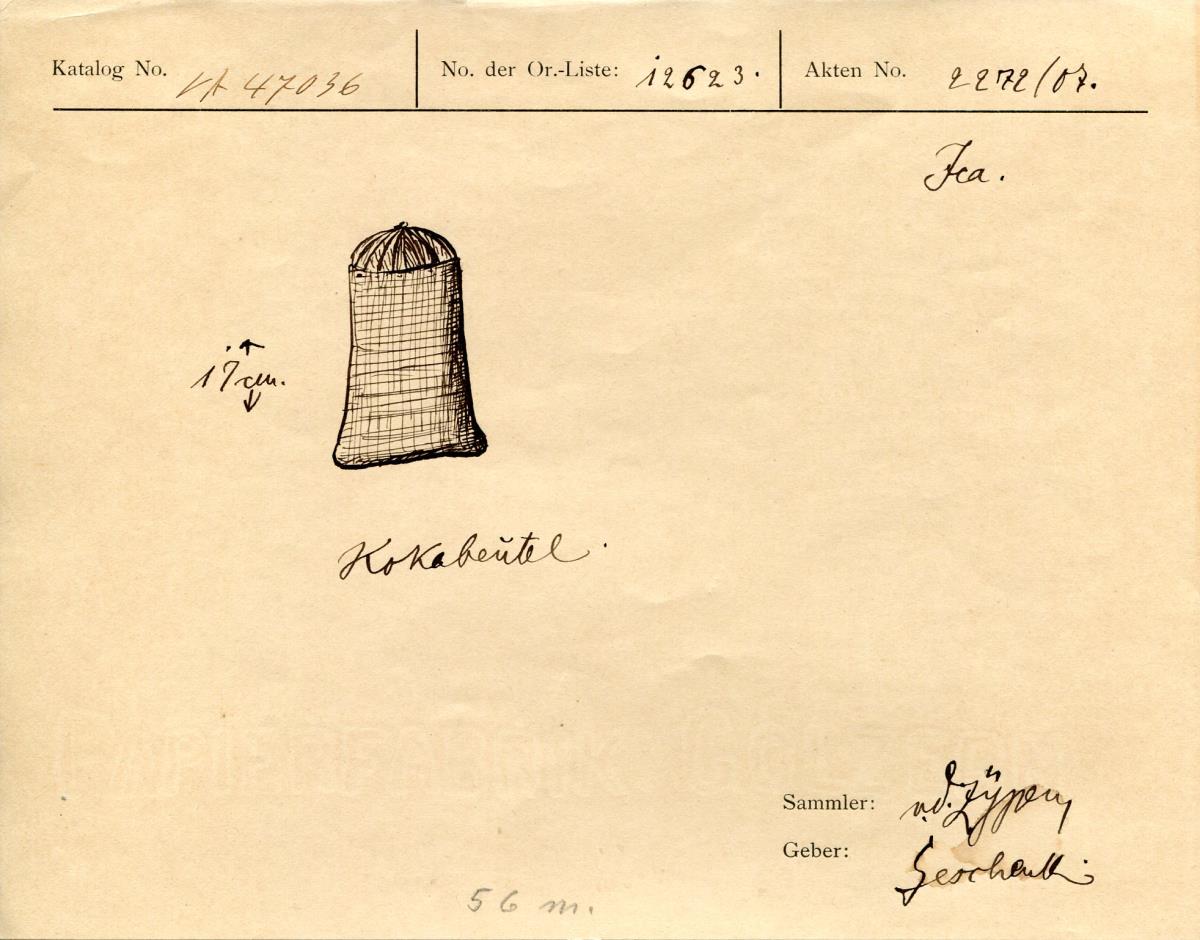 Katalog No. VA 47036 No. der Or.-Liste: 12623. Akten No. 2272/07.
Ica.
17 cm.
Kokabeutel.
Sammler: v.d. Zÿpen,
Geber: Geschenk.
56 m.